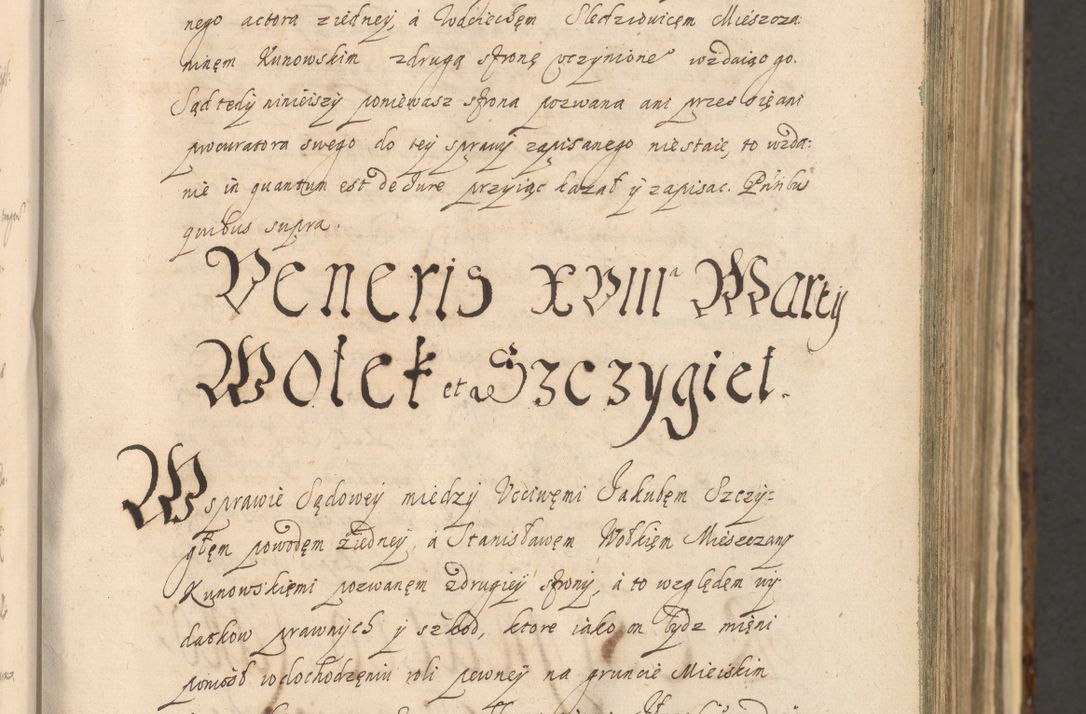 nego actora ziedney, a Woyciechęm Sledziowicęm Mieszcza
ninęm Kunowskim zdrugą stronę uczynione wzdaiogo.
Sąd tedy ninieiszy poniewasz strona pozwana ani przes się ani
procuratora swego do tey sprawy zapisanego niestaie, to wzda:
nie in quantum est de iure przyiąc kazał y zapisac. Pñtibus
quibus supra.
Veneris XVIII Marty
Wołek et Szczygieł.
W sprawie Sądowey miedzy Ucciwęmi Jakubęm Szczy:
głęm powodęm ziedney, a Stanisławęm Wołkięm Mieszczany
Kunowskięmi pozwanęm zdrugiey strony, a to względem wy
datkow prawnych y szkod, ktore iako on Tydz mięni
poniosł wdochodzęniu roli pewney na gruncie Mieiskim